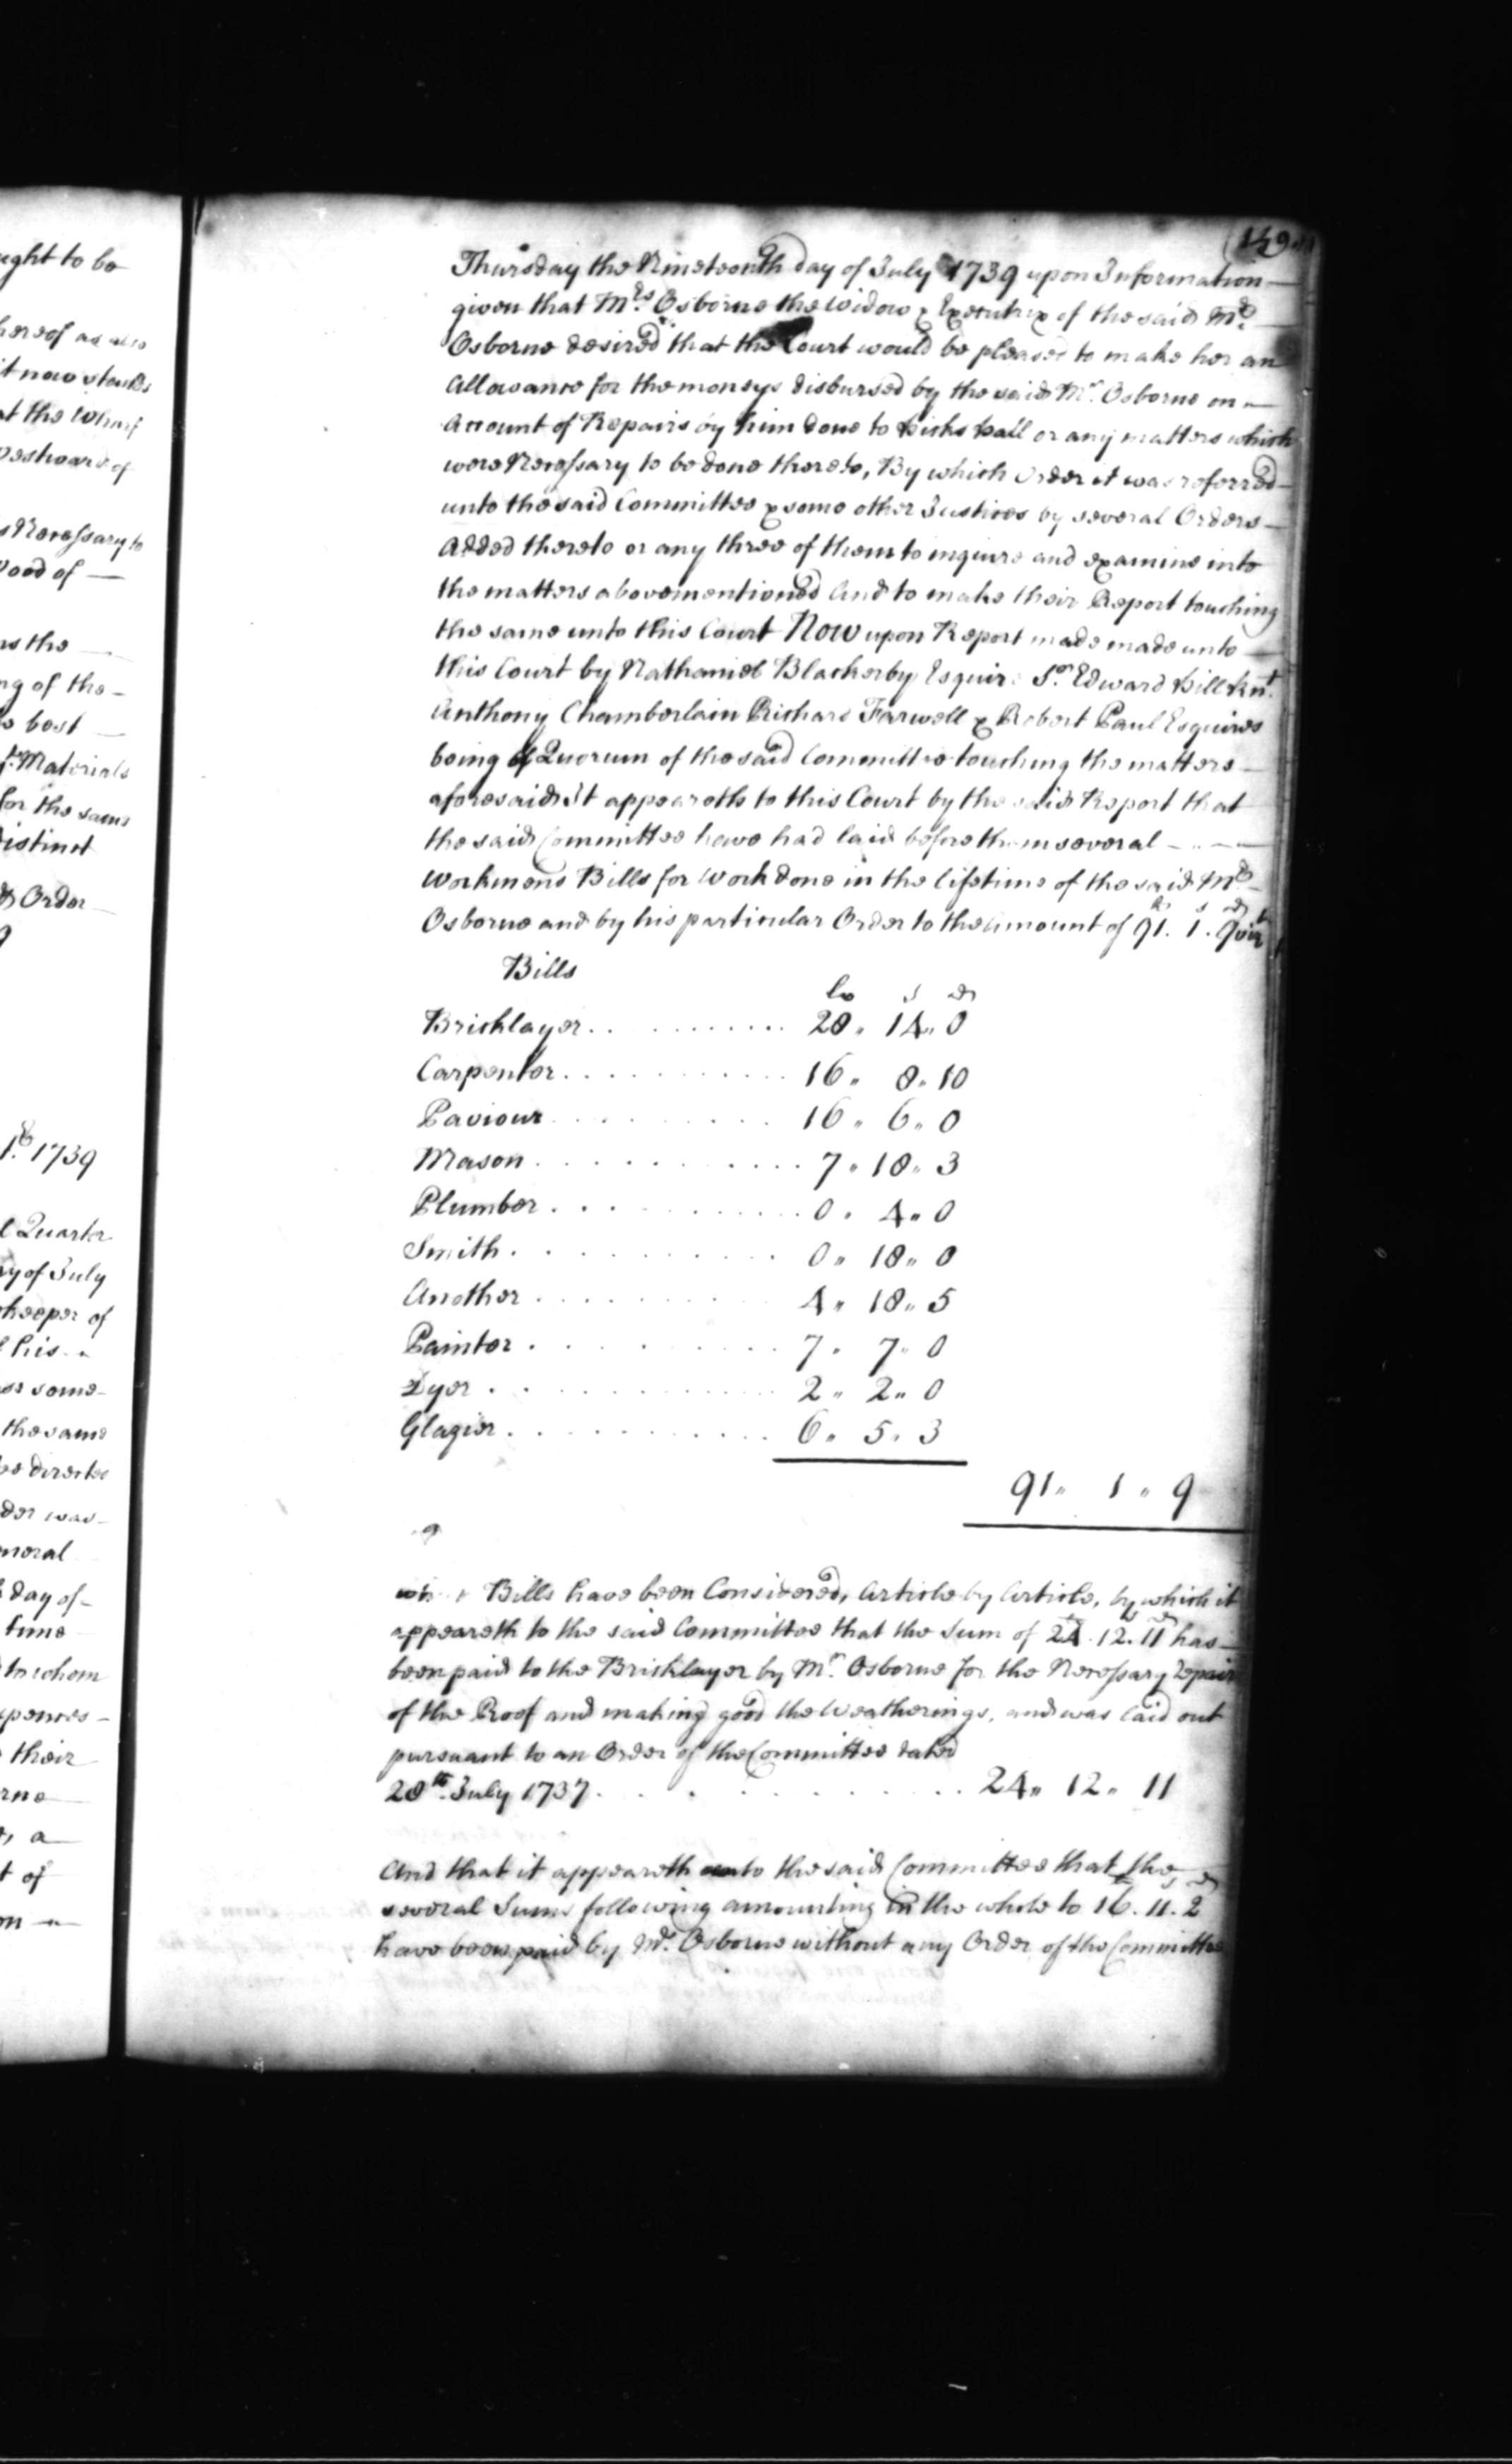 ught to be
hereof as also
it now stands
at the Wharf
Westward of
s Necessary to
Wood of —
ns the —
ng of the —
best —
Materials
for the same
Distinct
Order —
1739
l Quarter
ay of July
keeper of
his
some
the same
be directed
der was
neral
day of
time
to whom
pences —
their
rne
, a
t of
on —
149
Thursday the Nineteenth day of July 1739 upon Information —
given that Mrs. Osborne the Widow & Executrix of the said Mr. —
Osborne desired that the Court would be pleased to make her an
Allowance for the moneys disbursed by the said Mr. Osborne on —
Account of Repairs by him done to Hicks hall or any matters which
were Necessary to be done thereto, By which Order it was referred —
unto the said Committee & some other Justices by several Orders —
Added thereto or any three of them to inquire and examine into
the matters abovementioned And to make their Report touching
the same unto this Court Now upon Report made made unto —
this Court by Nathaniel Blackerby Esquire Sr. Edward Hill Knt.
Anthony Chamberlain Richard Farwell & Robert Paul Esquires
being a Quorum of the said Committee touching the matters —
aforesaid It appeareth to this Court by the said Report that
the said Committee have had laid before them several — —
Workmens Bills for Work done in the lifetime of the said Mr. —
Osborne and by his particular Order to the Amount of 91. 1. 9 vizt
Bills
l s d
Bricklayer . . . . . . . . 28 " 14 " 0
Carpenter . . . . . . . . 16 " 8 " 10
Paviour . . . . . . . . 16 " 6 " 0
Mason . . . . . . . . 7 " 18 " 3
Plumber . . . . . . . . 0 " 4 " 0
Smith . . . . . . . . 0 " 18 " 0
Another . . . . . . . . 4 " 18 " 5
Painter . . . . . . . . 7 " 7 " 0
Dyer . . . . . . . . 2 " 2 " 0
Glazier . . . . . . . . 6 " 5 " 3
91 " 1 " 9
which Bills have been Considered, Article by Article, by which it
appeareth to the said Committee that the Sum of 24. 12. 11 has —
been paid to the Bricklayer by Mr. Osborne for the Necessary repair
of the Roof and making good the Weatherings, and was laid out
pursuant to an Order of the Committee dated
28th. July 1737 . . . . . . . . 24 " 12 " 11
And that it appeareth unto the said Committee that the
several Sums following amounting in the whole to 16. 11. 2
have been paid by Mr. Osborne without any Order of the Committee